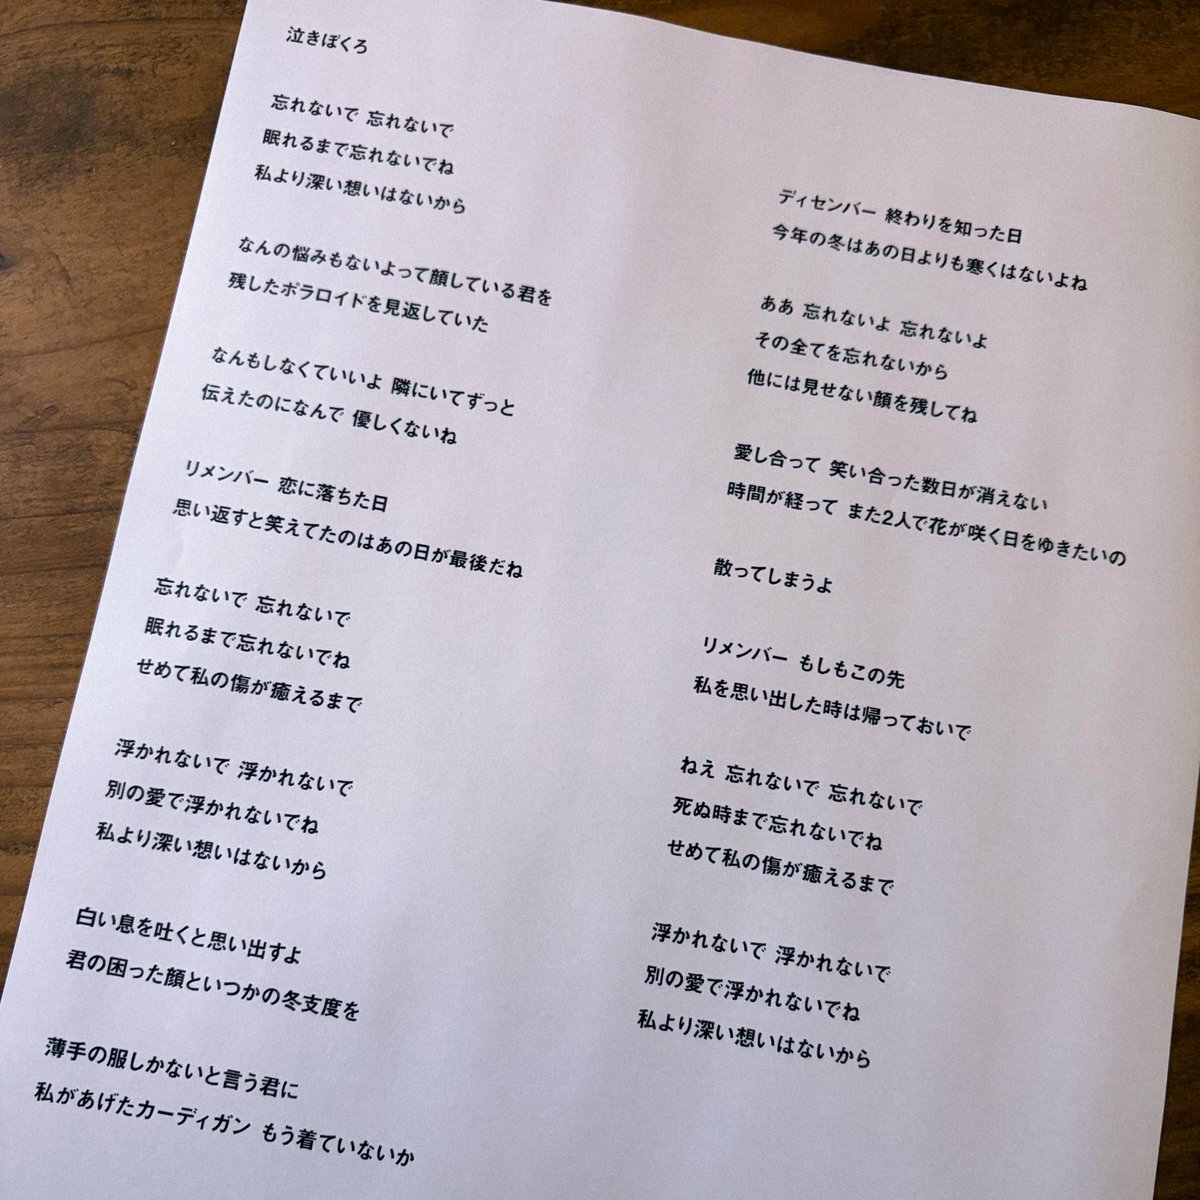 泣きぼくろ
忘れないで 忘れないで
眠れるまで忘れないでね
私より深い想いはないから
なんの悩みもないよって顔している君を
残したポラロイドを見返していた
なんもしなくていいよ 隣にいてずっと
伝えたのになんで 優しくないね
リメンバー 恋に落ちた日
思い返すと笑えてたのはあの日が最後だね
忘れないで 忘れないで
眠れるまで忘れないでね
せめて私の傷が癒えるまで
浮かれないで 浮かれないで
別の愛で浮かれないでね
私より深い想いはないから
白い息を吐くと思い出すよ
君の困った顔といつかの冬支度を
薄手の服しかないと言う君に
私があげたカーディガン もう着ていないか
ディセンバー 終わりを知った日
今年の冬はあの日よりも寒くはないよね
ああ 忘れないよ 忘れないよ
その全てを忘れないから
他には見せない顔を残してね
愛し合って 笑い合った数日が消えない
時間が経って また2人で花が咲く日をゆきたいの
散ってしまうよ
リメンバー もしもこの先
私を思い出した時は帰っておいで
ねえ 忘れないで 忘れないで
死ぬ時まで忘れないでね
せめて私の傷が癒えるまで
浮かれないで 浮かれないで
別の愛で浮かれないでね
私より深い想いはないから